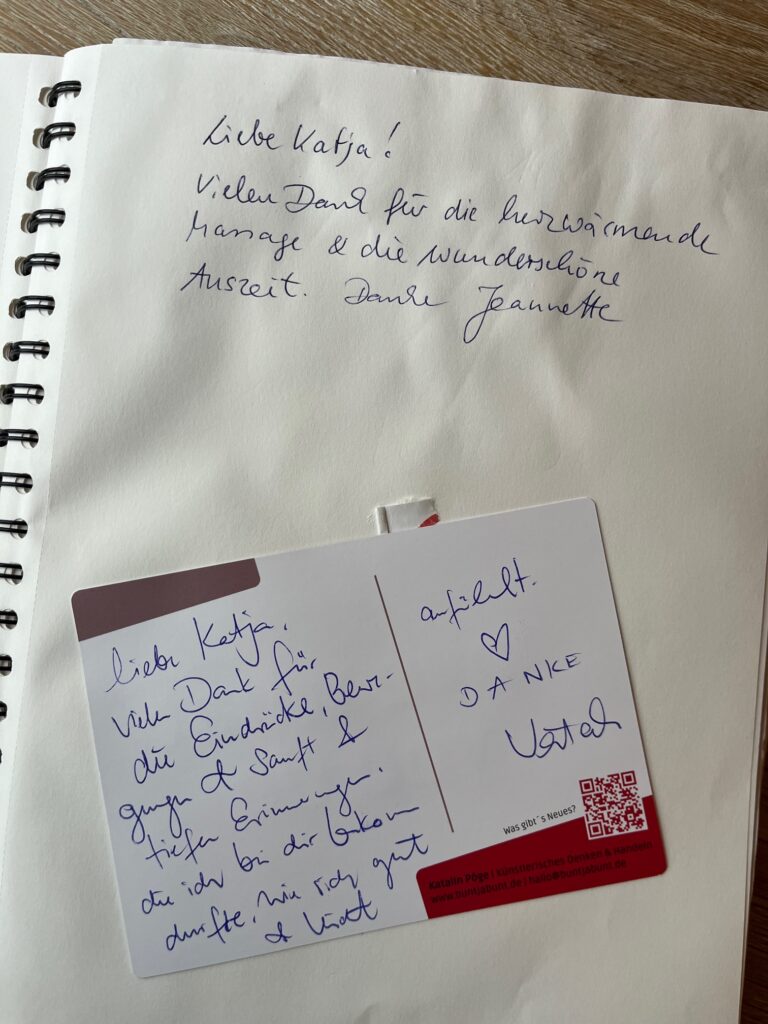 Liebe Katja!
Vielen Dank für die herzwärmende
Massage & die wunderschöne
Auszeit. Danke Jeannette
liebe Katja,
vielen Dank für
die Eindrücke, Bewe-
gungen & Sanft &
tiefen Erinnerungen.
die ich bei dir bekom
durfte, wie sich gut
&
anfühlt.
♡
DANKE
Was gibt´s Neues?
Katalin Pöge | Künstlerisches Denken & Handeln
www.buntjabunt.de | hallo@buntjabunt.de